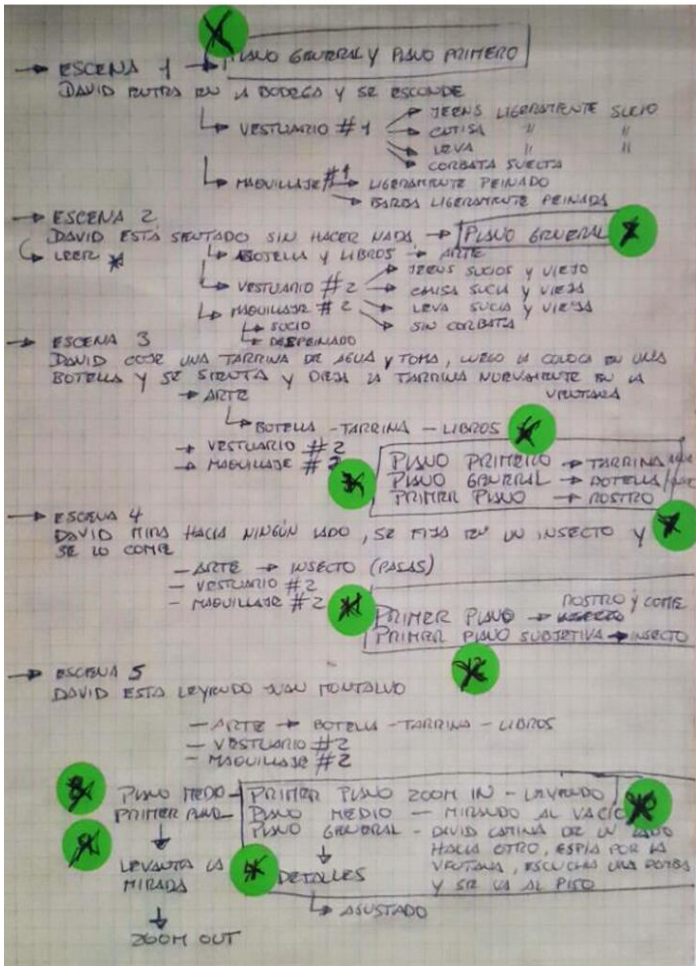 PLANO GENERAL Y PLANO PRIMERO
→ ESCENA 1 →
DAVID ENTRA EN LA BODEGA Y SE ESCONDE
VESTUARIO #1 → JEENS LIGERAMENTE SUCIO
CAMISA " "
LEVA " "
CORBATA SUELTA
MAQUILLAJE #1 → LIGERAMENTE PEINADO
BARBA LIGERAMENTE PEINADA
→ ESCENA 2
DAVID ESTÁ SENTADO SIN HACER NADA → PLANO GENERAL
LEER
BOTELLA Y LIBROS → ARTE
VESTUARIO #2 → JEENS SUCIOS Y VIEJO
CAMISA SUCIA Y VIEJA
MAQUILLAJE #2 LEVA SUCIA Y VIEJA
SUCIO SIN CORBATA
DESPEINADO
→ ESCENA 3
DAVID COJE UNA TARRINA DE AGUA Y TOMA, LUEGO LA COLOCA EN UNA
BOTELLA Y SE SIENTA Y DEJA LA TARRINA NUEVAMENTE EN LA
VENTANA
→ ARTE
BOTELLA - TARRINA - LIBROS
→ VESTUARIO #2
→ MAQUILLAJE #2
PLANO PRIMERO → TARRINA
PLANO GENERAL → BOTELLA/
PRIMER PLANO → ROSTRO
→ ESCENA 4
DAVID MIRA HACIA NINGÚN LADO, SE FIJA EN UN INSECTO Y
SE LO COME
- ARTE → INSECTO (PASAS)
- VESTUARIO #2
- MAQUILLAJE #2
ROSTRO Y COME
PRIMER PLANO → INSECTO
PRIMER PLANO SUBJETIVA → INSECTO
→ ESCENA 5
DAVID ESTA LEYENDO JUAN MONTALVO
- ARTE → BOTELLA - TARRINA - LIBROS
- VESTUARIO #2
- MAQUILLAJE #2
PLANO MEDIO - PRIMER PLANO ZOOM IN - LEYENDO
PRIMER PLANO PLANO MEDIO - MIRANDO AL VACIO
PLANO GENERAL - DAVID CAMINA DE UN LADO
HACIA OTRO, ESPÍA POR LA
LEVANTA LA VENTANA, ESCUCHA UNA BOMBA
MIRADA DETALLES Y SE VA AL PISO
ASUSTADO
ZOOM OUT